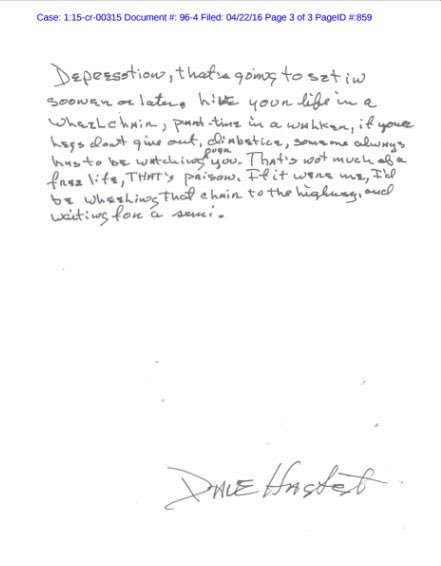 Case: 1:15-cr-00315 Document #: 96-4 Filed: 04/22/16 Page 3 of 3 PageID #:859
Depression, that's going to set in
sooner or later, hike your life in a
wheelchair, part-time in a walker, if your
legs dont give out, diabetice, someone always
has to be watching over you. That's not much of a
free life, THAT's prison. If it were me, I'd
be wheeling that chair to the highway, and
waiting for a semi.
DALE Hastert